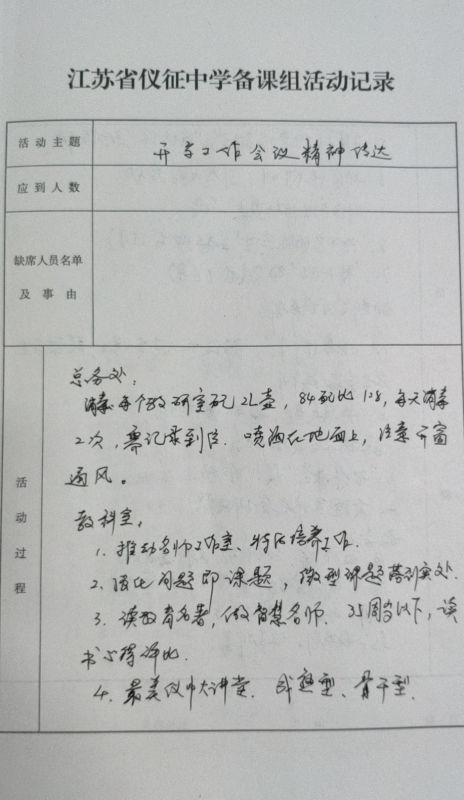 江苏省仪征中学备课组活动记录
活动主题
开学工作会议精神传达
应到人数
缺席人员名单
及事由
活动过程
总务处:
消毒每个教研室配2L壶,84配比1:28,每天消毒
2次,要记录到位.喷洒在地面上,注意开窗
通风。
教科室:
1. 推动名师工作室、特后培养工作.
2. 强化问题即课题,微型课题落到实处.
3. 读教育名著,做智慧名师. 35周岁以下,读
书心得评比.
4. 最美仪中大讲堂. 成熟型、骨干型.